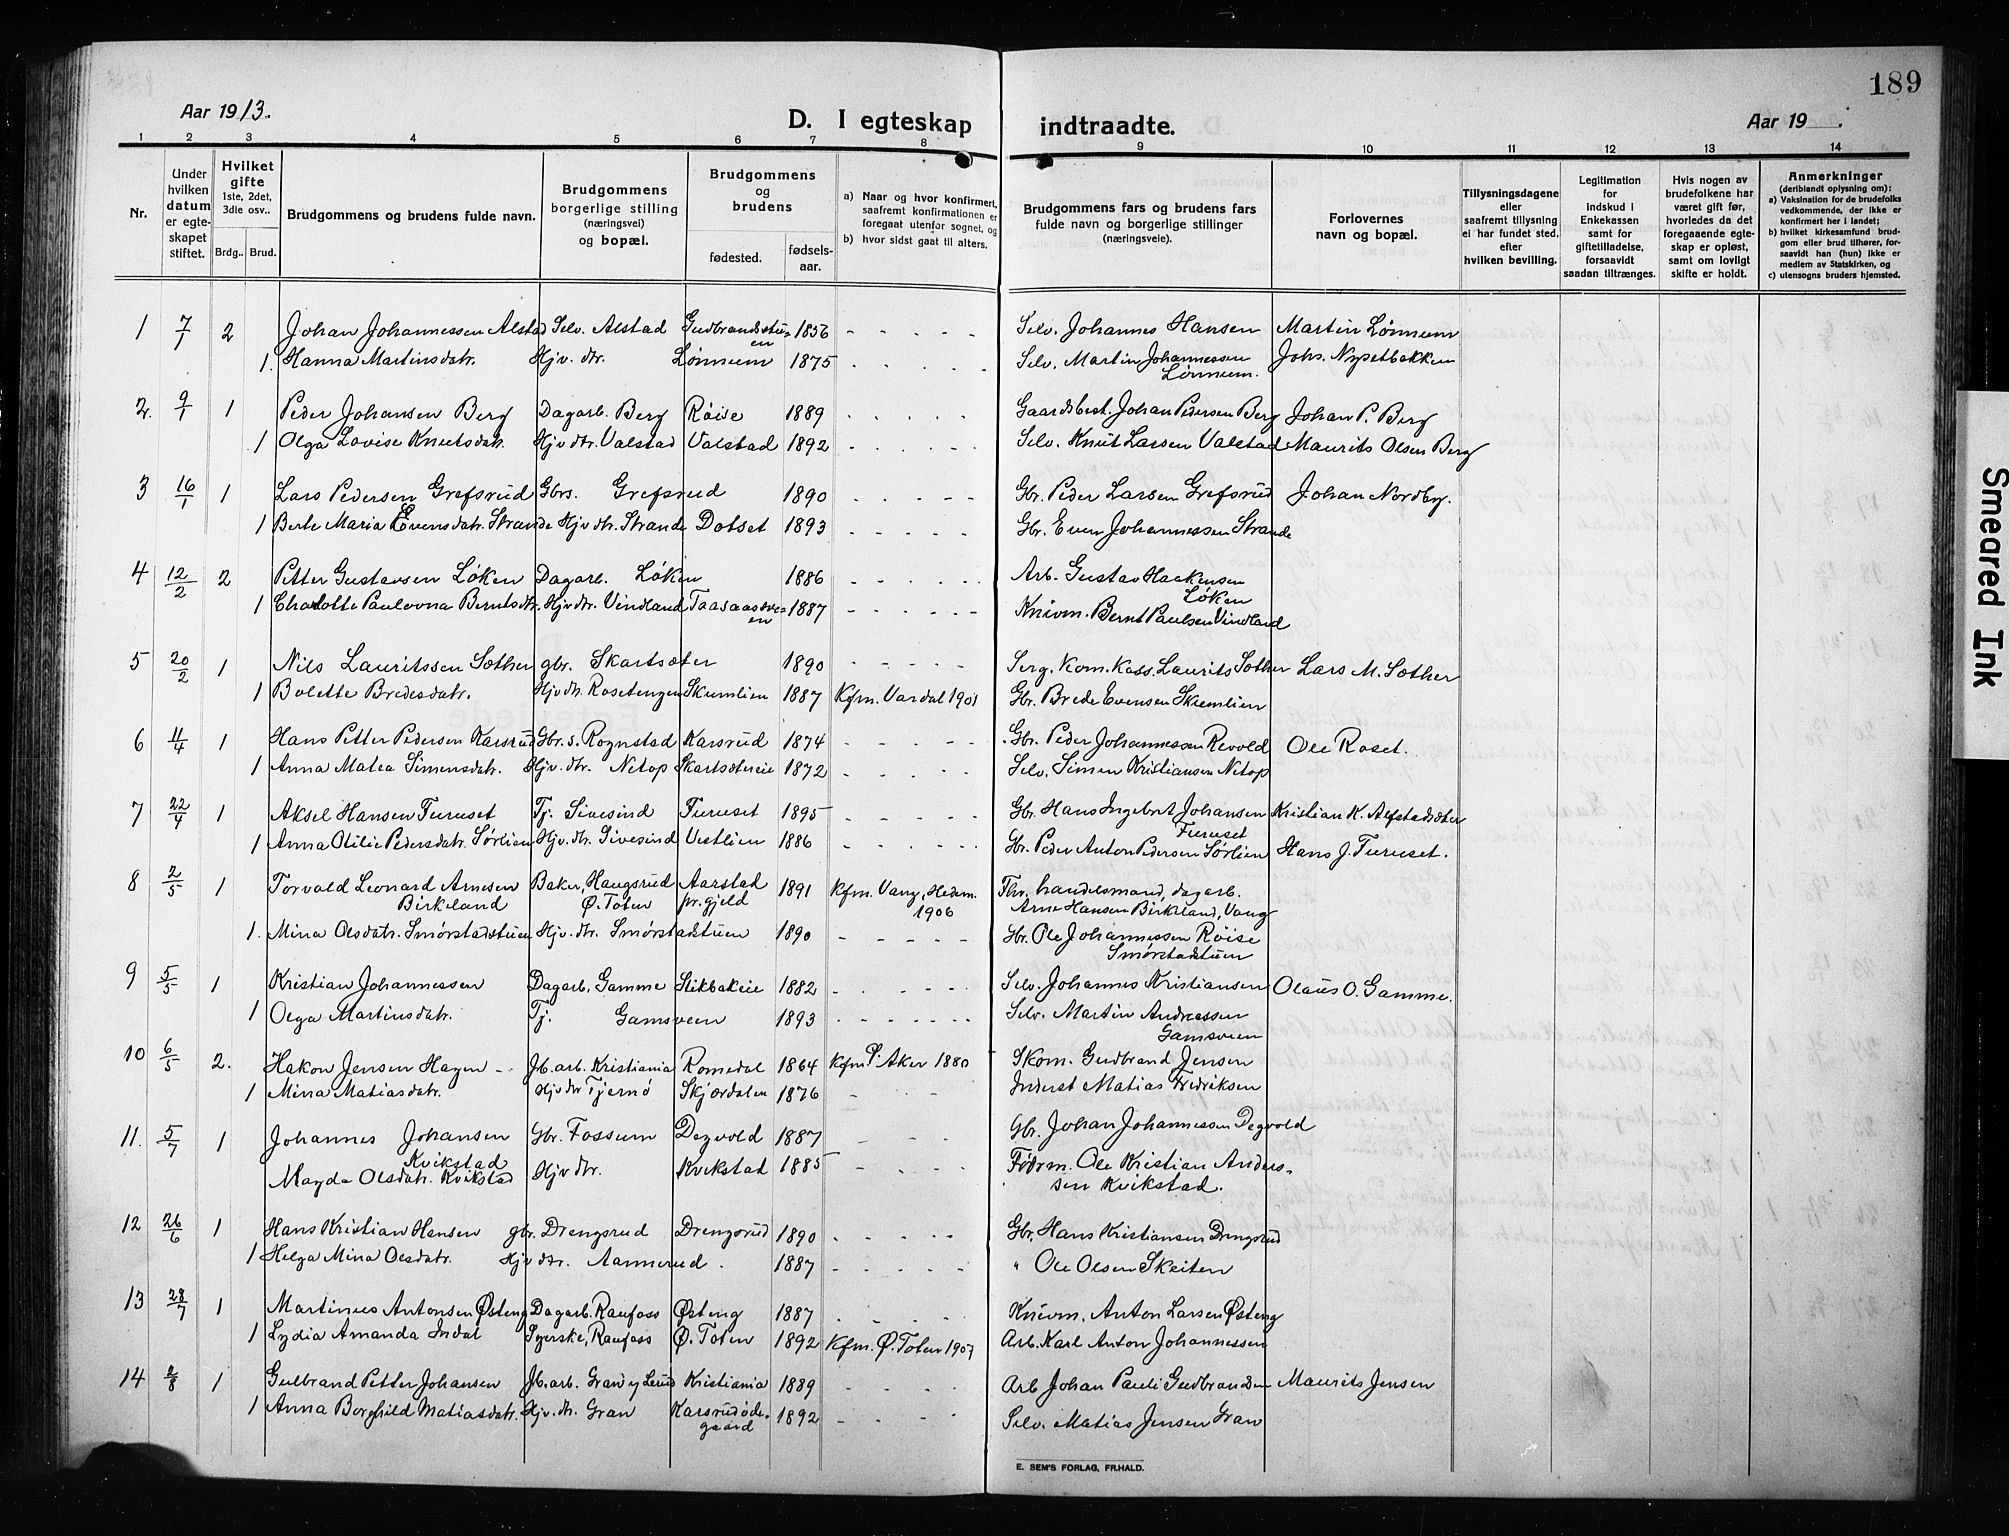 189
Aar 1913.
D. I egteskap indtraadte.
Aar 19 .
1 2 3 4 5 6 7 8 9 10 11 12 13 14
Nr.
Under hvilken datum er egteskapet stiftet.
Hvilket gifte 1ste, 2det, 3die osv..
Brdg.. Brud.
Brudgommens og brudens fulde navn.
Brudgommens borgerlige stilling (næringsvei) og bopæl.
Brudgommens og brudens
fødested. fødsels-aar.
a) Naar og hvor konfirmert, saafremt konfirmationen er foregaat utenfor sognet, og
b) hvor sidst gaat til alters.
Brudgommens fars og brudens fars fulde navn og borgerlige stillinger (næringsveie).
Forlovernes navn og bopæl.
Tillysningsdagene eller saafremt tillysning ei har fundet sted, efter hvilken bevilling.
Legitimation for indskud i Enkekassen samt for giftetilladelse, forsaavidt saadan tiltrænges.
Hvis nogen av brudefolkene har været gift før, hvorledes da det foregaaende egteskap er opløst, samt om lovligt skifte er holdt.
Anmerkninger (deriblandt oplysning om):
a) Vaksination for de brudefolks vedkommende, der ikke er konfirmert her i landet;
b) hvilket kirkesamfund brudgom eller brud tilhører, forsaavidt han (hun) ikke er medlem av Statskirken, og
c) utensogns bruders hjemsted.
1 7/1 2 Johan Johannessen Alstad Selv. Alstad Gudbrandstuen 1856 Selv. Johannes Hansen Martin Lønnum
1. Hanna Martinsdatr. Hjv. dtr. Lønnum 1875 Selv. Martin Johannessen Lønnum. Johs. Nysetbakken
2. 9/1 1 Peder Johansen Berg Dagarb. Berg Røise 1889 Gaardsbest. Johan Pedersen Berg Johan P. Berg
1 Olga Lovise Knutsdatr. Hjv dtr. Valstad Valstad 1892 Selv. Knut Larsen Valstad Maurits Olsen Berg
3 16/1 1 Lars Pedersen Grefsrud Gbrs. Grefsrud 1890 Gbr. Peder Larsen Grefsrud Johan Nordby.
1 Berte Maria Evensdatr. Strande Hjv dtr. Strande Dotset 1893 Gbr. Even Johannessen Strande
4 12/2 2 Petter Gustavsen Løken Dagarb. Løken 1886 Arb. Gustav Haakensen Løken
1 Charlotte Paulovna Berntsdtr. Hjv dtr. Vindland Taasaasveen 1887 Knivm. Bernt Paulsen Vindland
5 20/2 1 Nils Lauritssen Sæther gbr. Skartsæter 1890 Serg. Kom. Kass. Laurits Sæther Lars M. Sæther
1 Bolette Bredesdatr. Hjv dtr. Rosetengen Skumlien 1887 Kfm. Vardal 1901 Gbr. Brede Evensen Skumlien
6 11/4 1 Hans Petter Pedersen Karsrud Gbr. s. Rognstad Karsrud 1874 Gbr. Peder Johannessen Revold Ole Roset.
1 Anna Matea Simensdatr. Hjv. dtr. Netop Skartsætereie 1872 Selv. Simen Kristiansen Netop
7 22/4 1 Aksel Hansen Furuset Tj. Sivesind Furuset 1895 Gbr. Hans Ingebret Johansen Furuset Kristian K. Alfstadsæter
1 Anna Otilie Pedersdatr. Sørlien Hjv. dtr. Sivesind Vestlien 1886 Gbr. Peder Anton Pedersen Sørlien Hans J. Furuset.
8 2/5 1 Torvald Leonard Arnesen Birkeland Baker, Haugsrud Ø. Toten Aarstad pr.gjeld 1891 Kfm. Vang, Hedem. 1906 Fhv. handelsmand, dagarb. Arne Hansen Birkeland, Vang
1. Mina Olsdatr. Smørstadstuen Hjv. dtr. Smørstadstuen 1890 Gbr. Ole Johannessen Røise Smørstadstuen
9 5/5 1 Kristian Johannessen Dagarb, Gamme Stikbakeie 1882 Selv. Johannes Kristiansen Olaus O. Gamme.
1 Olga Martinsdatr. Tj. Gamsveen 1893 Selv. Martin Andreassen Gamsveen
10 6/5 2. Hakon Jensen Hagen Jb. arb. Kristiania Romedal 1864 Kfm. Aker 1880 Skom. Gudbrand Jensen
1 Mina Matiasdatr. Hjv dtr Tjernø Skjærdalen 1876 Inderst Matias Fredriksen
11. 5/7 1 Johannes Johansen Kvikstad Gbr. Fossum Degvold 1887 Gbr. Johan Johannessen Degvold
Magda Olsdatr. Kvikstad Hjv dtr. Kvikstad 1885 Fødrm. Ole Kristian Anderssen Kvikstad.
12 26/6 1 Hans Kristian Hansen gbr. Drengsrud Drengsrud 1890 Gbr. Hans Kristiansen Drengsrud
1 Helga Mina Olsdatr. Hjv dtr. Aannerud. 1887 " Ole Olsen Skeiten
13 28/7 1 Martinus Antonsen Østeng Dagarb. Raufoss Østeng 1887 Knivm. Anton Larsen Østeng
1 Lydia Amanda Indal Syerske, Raufoss Ø. Toten 1892 Kfm. Ø. Toten 1907 Arb. Karl Anton Johannessen
14 2/8 1 Gulbrand Petter Johansen Jb. arb. Gran Kristiania 1889 Arb Johan Pauli Gudbrandsen Maurits Jensen
1 Anna Borghild Matiasdatr. Hjv. dtr. Gran Karsrudødegaard 1892 Selv. Matias Jensen Gran
E. SEM'S FORLAG, FR.HALD.
Smeared Ink